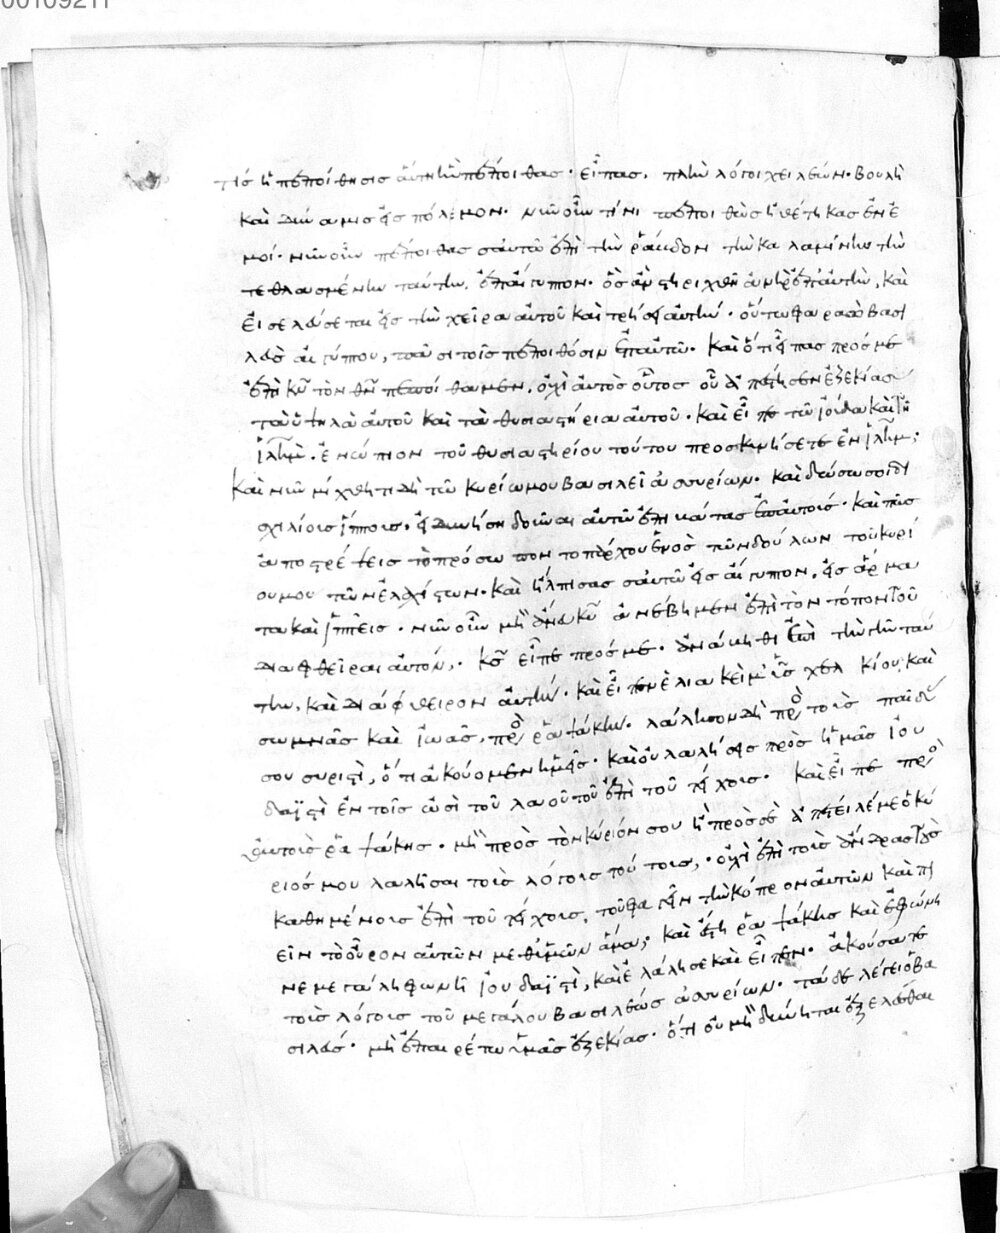 00109211
τίς ἡ πεποίθησις αὕτη ἣν πέποιθας· εἶπας, πλὴν λόγοι χειλέων· βουλὴ
καὶ δύναμις εἰς πόλεμον· νῦν οὖν τίνι πεποιθὼς ἠθέτηκας ἐν ἐ
μοί· νῦν οὖν πέποιθας σαυτῶ ἐπὶ τὴν ῥάβδον τὴν καλαμίνην τὴν
τεθλασμένην ταύτην, ἐπ' αἴγυπτον· ὃς ἂν στηριχθῆ ἀνὴρ ἐπ' αὐτὴν, καὶ
εἰσελεύσεται εἰς τὴν χεῖρα αὐτοῦ καὶ τρήσει αὐτήν· οὕτω φαραὼ βασι
λεὺς αἰγύπτου, πᾶσι τοῖς πεποιθόσιν ἐπ' αὐτῶ· καὶ ὅτι εἶπας πρός με
ἐπὶ κν τὸν θν πεποίθαμεν, οὐχὶ αὐτὸς οὗτος οὗ ἀπέστησεν ἐζεκίας
τὰ ὑψηλὰ αὐτοῦ καὶ τὰ θυσιαστήρια αὐτοῦ· καὶ εἶπε τῶ ἰούδα καὶ τῆ
ἰλημ· ἐνώπιον τοῦ θυσιαστηρίου τούτου προσκυνήσετε ἐν ἰλημ;
καὶ νῦν μίχθητι δὴ τῶ κυρίω μου βασιλεῖ ἀσσυρίων· καὶ δώσω σοι δι
σχιλίους ἵππους, εἰ δυνήση δοῦναι αὐτῶ ἐπιβάτας ἐπ' αὐτούς· καὶ πῶς
ἀποστρέψεις τὸ πρόσωπον τοπάρχου ἑνὸς τῶν δούλων τοῦ κυρί
ου μου τῶν ἐλαχίστων· καὶ ἤλπισας σαυτῶ εἰς αἴγυπτον, εἰς ἅρμα
τα καὶ ἱππεῖς· νῦν οὖν μὴ ἄνευ κυ ἀνέβημεν ἐπὶ τὸν τόπον τοῦ
διαφθεῖραι αὐτόν,· κς εἶπε πρός με· ἀνάβηθι ἐπὶ τὴν γῆν ταύ
την, καὶ διάφθειρον αὐτήν· καὶ εἶπεν ἐλιακεὶμ υἱὸς χελκίου, καὶ
σωμνᾶς καὶ ἰωᾶς, πρὸς ῥαψάκην· λάλησον δὴ πρὸς τοὺς παῖδάς
σου συριστὶ, ὅτι ἀκούομεν ἡμεῖς· καὶ οὐ λαλήσεις πρὸς ἡμᾶς ἰου
δαϊστὶ ἐν τοῖς ὠσὶ τοῦ λαοῦ τοῦ ἐπὶ τοῦ τείχους· καὶ εἶπε πρὸς
αὐτοὺς ῥαψάκης· μὴ πρὸς τὸν κύριόν σου ἢ πρὸς σὲ ἀπέσταλκέ με ὁ κύ
ριός μου λαλῆσαι τοὺς λόγους τούτους,· οὐχὶ ἐπὶ τοὺς ἄνδρας τοὺς
καθημένους ἐπὶ τοῦ τείχους, τοῦ φαγεῖν τὴν κόπρον αὐτῶν καὶ πι
εῖν τὸ οὖρον αὐτῶν μεθ' ὑμῶν ἅμα; καὶ ἔστη ῥαψάκης καὶ ἐφώνη
σε μεγάλη φωνῆ ἰουδαϊστὶ, καὶ ἐλάλησε καὶ εἶπεν· ἀκούσατε
τοὺς λόγους τοῦ μεγάλου βασιλέως ἀσσυρίων· τάδε λέγει ὁ βα
σιλεύς· μὴ ἐπαιρέτω ὑμᾶς ἐζεκίας· ὅτι οὐ μὴ δύνηται ἐξελέσθαι